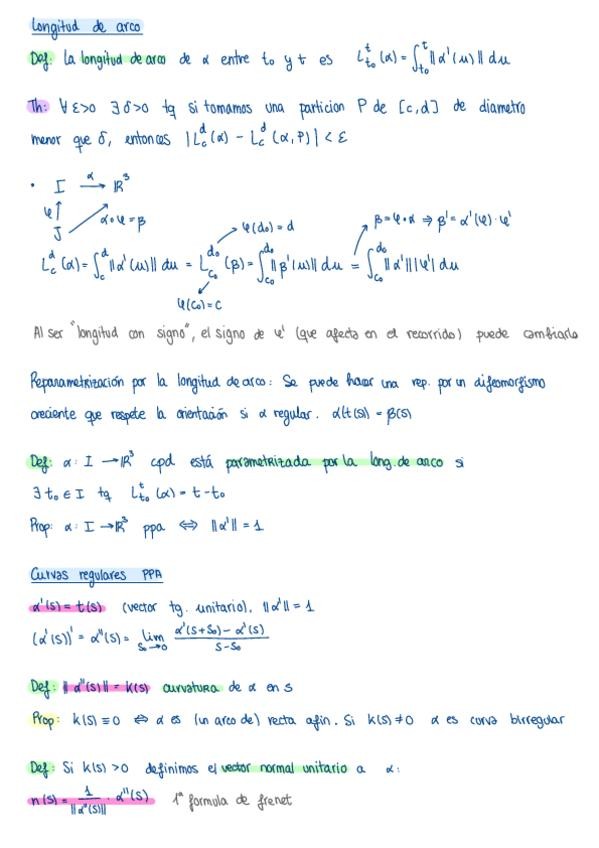 Longitud de arco
Def: La longitud de arco de α entre t₀ y t es L_{t₀}^{t}(α) = ∫_{t₀}^{t} ||α'(u)|| du
Th: ∀ ε>0 ∃ δ>0 tq si tomamos una particion P de [c,d] de diametro
menor que δ, entonces |L_c^d(α) - L_c^d(α,P)| < ε
• I →^α ℝ³
φ↑ α∘φ=β
J
φ(d₀)=d β=φ∘α ⇒ β'=α'(φ)·φ'
L_c^d(α) = ∫_c^d ||α'(u)|| du = L_{c₀}^{d₀}(β) = ∫_{c₀}^{d₀} ||β'(u)|| du = ∫_{c₀}^{d₀} ||α'|| |φ'| du
φ(c₀)=c
Al ser "longitud con signo", el signo de φ' (que afecta en el recorrido) puede cambiarlo
Reparametrización por la longitud de arco: Se puede hacer una rep. por un difeomorfismo
creciente que respete la orientación si α regular. α(t(s)) = β(s)
Def: α: I → ℝ³ cpd está parametrizada por la long. de arco si
∃ t₀ ∈ I tq L_{t₀}^{t}(α) = t - t₀
Prop: α: I → ℝ³ ppa ⇔ ||α'|| = 1
Curvas regulares PPA
α'(s) = t(s) (vector tg. unitario). ||α'|| = 1
(α'(s))' = α''(s) = lim_{s₀→0} (α'(s+s₀) - α'(s))/(s-s₀)
Def: ||α''(s)|| = k(s) curvatura de α en s
Prop: k(s) ≡ 0 ⇔ α es (un arco de) recta afin. Si k(s) ≠ 0 α es curva birregular
Def: Si k(s) > 0 definimos el vector normal unitario a α:
n(s) = 1/||α''(s)|| · α''(s) 1ª formula de frenet